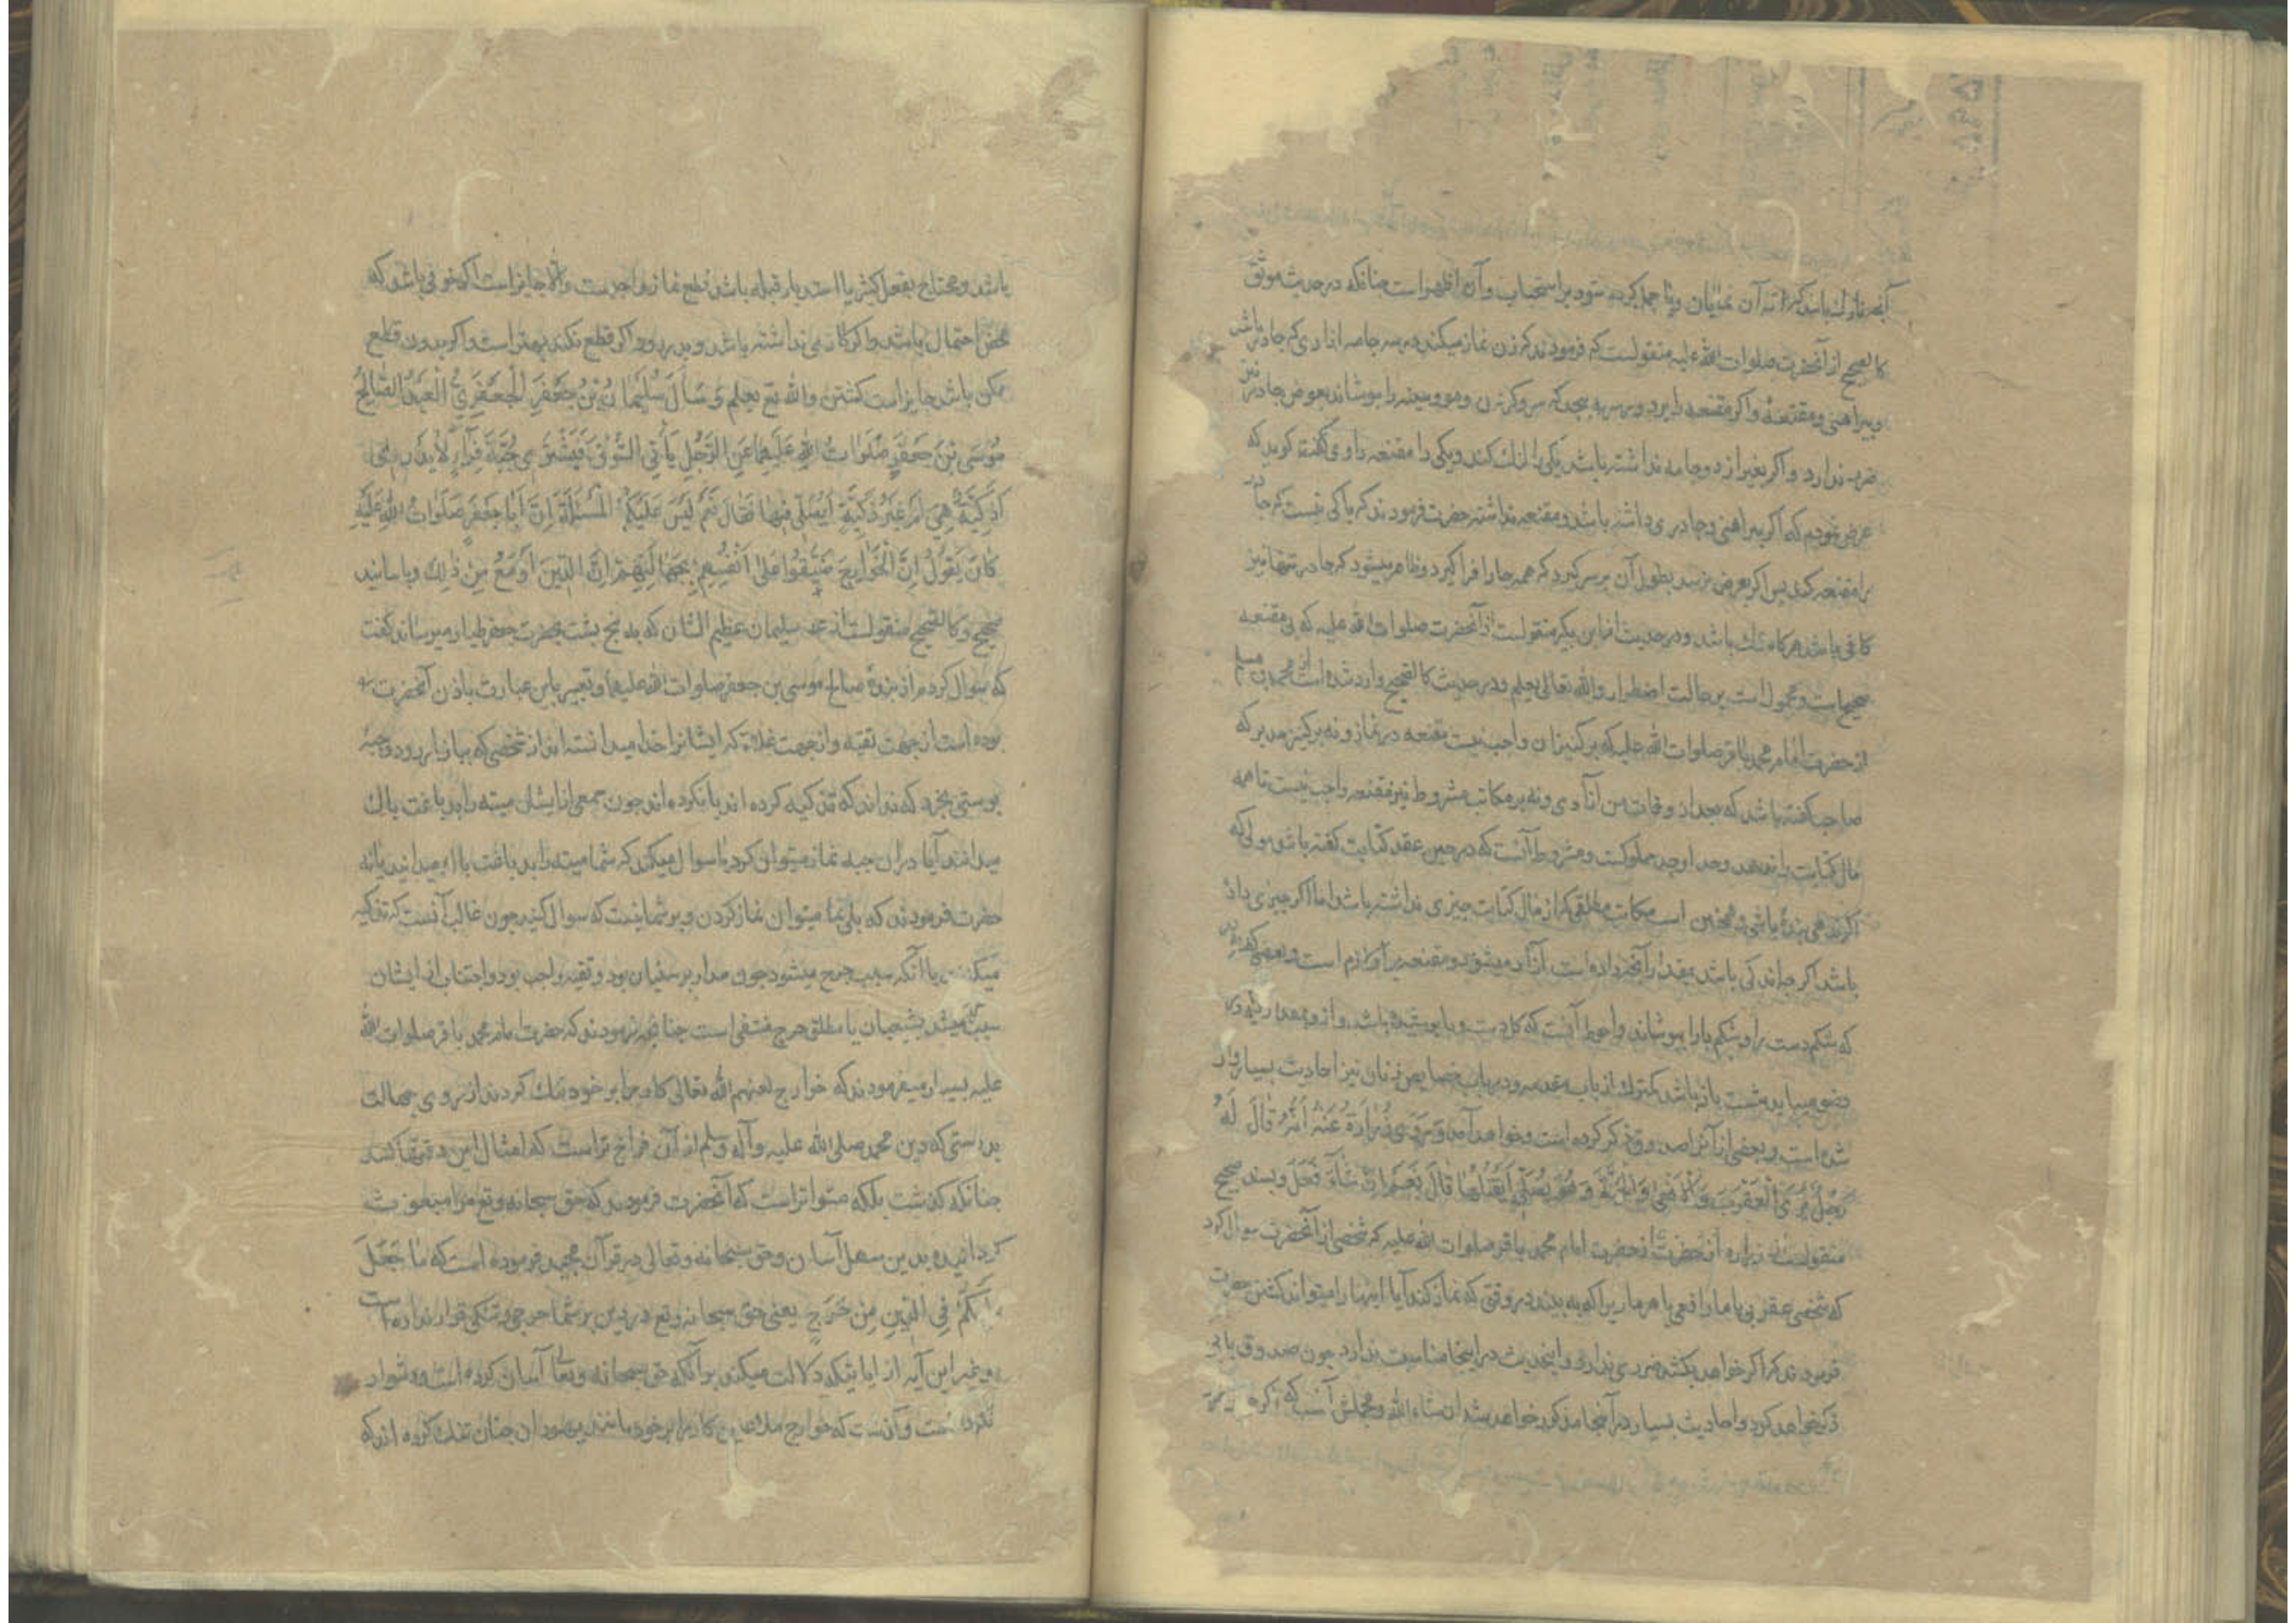 آنچه نازك باشد كه ته آن نمايان و يا حمل كرده شود بر استحباب و آن اظهر است چنانكه در حديث موثق
كالصحيح از آنحضرت صلوات الله عليه منقولست كه فرمودند كه زن نماز ميكند در سه جامه ازاری كه چادر باشد
و پيراهنی و مقنعهٔ و اگر مقنعه را برد و بر سر به پيچد كه سر و گردن و مو و سينه را بپوشاند بعوض چادر نيز
ضرر ندارد و اگر بغير از دو جامه نداشته باشد يكی را لنك كند و يكی را مقنعه راوی گفت كه
عرض نمودم كه اگر پيراهنی و چادری داشته باشد و مقنعه نداشته حضرت فرمودند كه باكی نيست كه چادر
را مقنعه كند پس اگر بعرض نرسد بطول آن بر سر گيرد كه همه جا را فرا گيرد و ظاهر ميشود كه چادر تنها نيز
كافی باشد هرگاه تنك باشد و در حديث ابن بكير منقولست از آنحضرت صلوات الله عليه كه بی مقنعه
صحيح است و محمول است بر حالت اضطرار والله تعالی يعلم و در حديث كالصحيح وارد شده است از محمد بن مسلم
از حضرت امام محمد باقر صلوات الله عليه كه بر كنيزان واجب نيست مقنعه در نماز و نه بر كنيز مدبر كه
صاحب گفته باشد كه بعد از وفات من آزادی و نه بر مكاتب مشروط نيز مقنعه واجب نيست تا همه
مال كتابت را بدهد و حد او حد مملوكست و مشروط آنست كه در حين عقد كتابت گفته باشد مولی كه
اگر ندهی بندهٔ باشی و همچنين است مكاتب مطلقی كه از مال كتابت چيزی نداشته باشد و اما اگر چيزی داده
باشد اگر چه اندكی باشد بمقدار آنچه داده است آزاد ميشود و مقنعه بر او لازم است و بعضی گفته اند
كه شكم دست را و شكم پا را بپوشاند و احوط آنست كه كار دست و پا پوشيده باشد و از رو بمقداری كه در
وضو ميبايد شست باز باشد كمترك از باب مقدمه و در باب خصايص زنان نيز احاديث بسيار وارد
شده است و بعضی از آنرا صدوق ذكر كرده است و خواهد آمد وَرَوَی زُرَارَةُ عَنْهُ اَنَّهُ قَالَ لَهُ
رَجُلٌ يَرَی الْعَقْرَبَ وَالْاَفْعَی وَالْحَيَّةَ وَهُوَ يُصَلِّی اَيَقْتُلُهَا قَالَ نَعَمْ اِنْ شَآءَ فَعَلَ و بسند صحيح
منقولست از زراره از حضرت امام محمد باقر صلوات الله عليه كه شخصی از آنحضرت سوال كرد
كه شخصی عقربی يا مار افعی يا هر ماری را كه به بيند در وقتی كه نماز كند آيا اينها را ميتواند كشتن حضرت
فرمودند كه اگر خواهد بكشد ضرری ندارد و اينحديث در اينجا مناسبت ندارد چون صدوق بابی
ذكر خواهد كرد و احاديث بسيار در آنجا مذكور خواهد شد ان شاء الله و مجملش آنست كه اگر
باشد و محتاج بفعل كثير يا استدبار قبله باشد قطع نماز واجبست والا جايز است اگر خوفی باشد كه
محض احتمال باشد و اگر كاری نداشته باشد و ميرود اگر قطع نكند بهتر است و اگر بدون قطع
ممكن باشد جايز است كشتن والله تع يعلم وَسَاَلَ سُلَيْمَانُ بْنُ جَعْفَرٍ الْجَعْفَرِيُّ الْعَبْدَ الصَّالِحَ
مُوسَی بْنَ جَعْفَرٍ صَلَوَاتُ اللّٰهِ عَلَيْهِمَا عَنِ الرَّجُلِ يَأْتِی السُّوقَ فَيَشْتَرِی جُبَّةَ فِرَآءٍ لَايَدْرِی
اَذَكِيَّةٌ هِيَ اَمْ غَيْرُ ذَكِيَّةٍ اَيُصَلِّی فِيهَا فَقَالَ نَعَمْ لَيْسَ عَلَيْكُمُ الْمَسْئَلَةُ اِنَّ اَبَا جَعْفَرٍ صَلَوَاتُ اللّٰهِ عَلَيْهِ
كَانَ يَقُولُ اِنَّ الْخَوَارِجَ ضَيَّقُوا عَلٰی اَنْفُسِهِمْ بِجَهَالَتِهِمْ اِنَّ الدِّينَ اَوْسَعُ مِنْ ذٰلِكَ و باسانيد
صحيح و كالصحيح منقولست از سليمان عظيم الشان كه به پنج پشت بحضرت جعفر طيار ميرساند گفت
كه سوال كردم از بندهٔ صالح موسی بن جعفر صلوات الله عليهما و تعبير باين عبارت باذن آنحضرت
بوده است از جهت تقيه و از جهت غلاة كه ايشانرا خدا ميدانسته اند از شخصی كه ببازار رود و جبهٔ
پوستی بخرد كه نداند كه تذكيه كرده اند يا نكرده اند چون جمعی از ايشان ميته را بدباغت پاك
ميدانند آيا در ان جبه نماز ميتوان كرد يا سوال ميكند كه شما ميته را بدباغت پاك ميدانيد يا نه
حضرت فرمودند كه بلی نماز ميتوان كردن و بر شما نيست كه سوال كنيد چون غالب آنست كه تذكيه
ميكنند يا آنكه سبب حرج ميشود چون مدار بر سنيان بود و تقيه واجب بود و اجتناب از ايشان
سبب ميشد بشيعيان يا مطلق حرج منتفی است چنانچه فرمودند كه حضرت امام محمد باقر صلوات الله
عليه بسيار ميفرمودند كه خوارج لعنهم الله تعالی كار را بر خود تنك كردند از روی جهالت
بدرستی كه دين محمد صلی الله عليه وآله وسلم از آن فراخ تر است كه امثال اين دقتها كنند
چنانكه گذشت بلكه متواتر است كه آنحضرت فرمودند كه حق سبحانه و تع مرا مبعوث
گردانيده بدين سهل آسان و حق سبحانه و تعالی در قرآن مجيد فرموده است كه مَا جَعَلَ
عَلَيْكُمْ فِی الدِّينِ مِنْ حَرَجٍ يعنی حق سبحانه و تع در دين بر شما حرجی و تنكی قرار نداده است
و غير اين آيه از آياتيكه دلالت ميكند بر آنكه حق سبحانه و تعالی آسان كرده است و دشوار
نكرده است و آنست كه خوارج ملاعين كار را بر خود مانند يهودان چنان تنك كرده اند كه